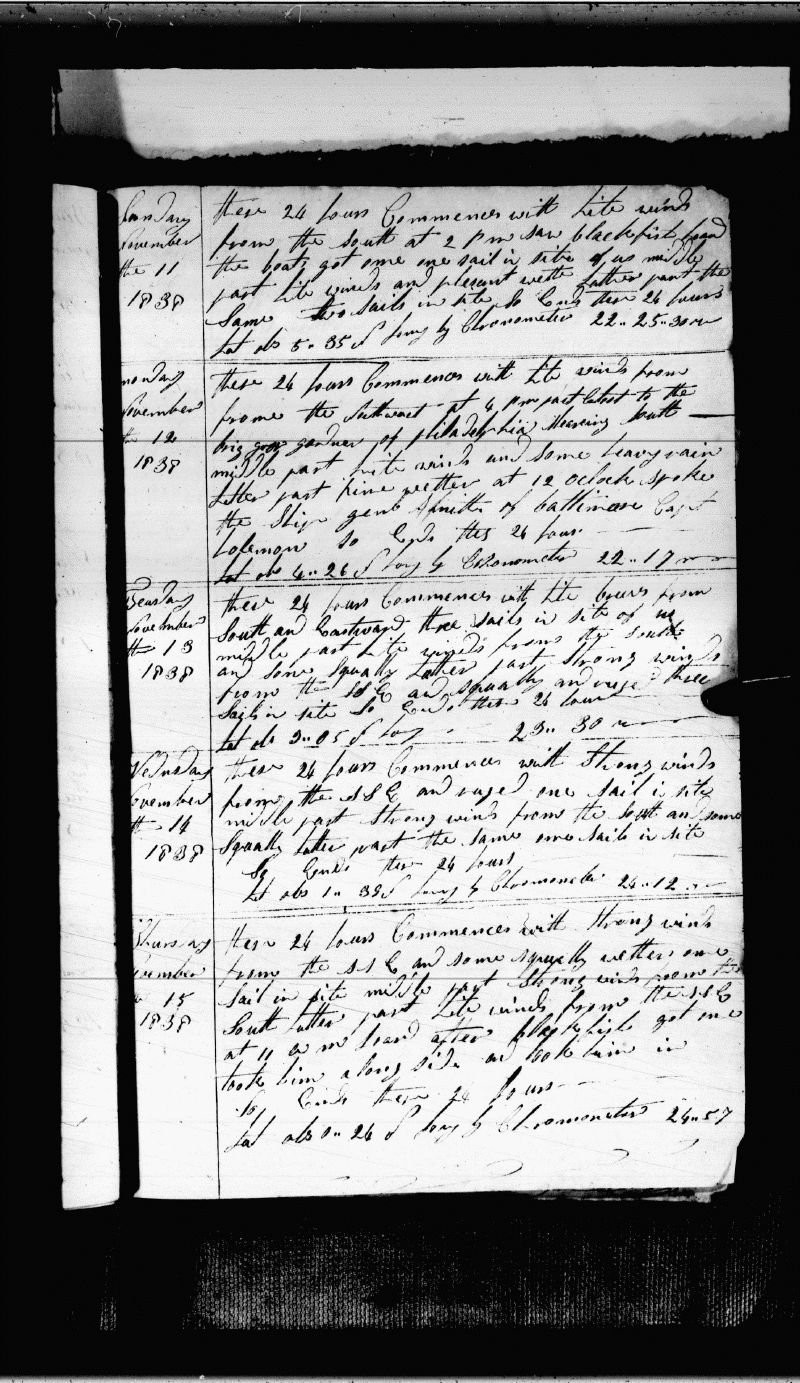 Sunday
November
the 11
1838
these 24 hours Commences with lite winds
from the south at 2 Pm saw blackfish lowd
the boats got one one sail in site of us middle
part lite winds and plesant wether latter part the
same two sails in site So Ends these 24 hours
Lat obs 5.. 35 S Long by Chronometer 22.. 25.. 30
monday
November
th 12
1838
these 24 hours Commences with lite winds from
frome the Suthward at 4 pm past to the
brig gardner of philadelphia Stearing South
middle part lite winds and some heavy rain
latter part wether at 12 Oclock spoke
the Ship genl of baltimore Capt
So Ends thes 24 hours
Lat obs 4.. 26 S Long by Cchronometer 22.. 17
Teusday
November
th 13
1838
these 24 hours Commences with lite from
South and Eastward three sails in site of us
middle part lite winds from the South
and some Squally latter part Strong winds
from the SSE and squally and ruged three
Sails in site So Ends these 24 hours
Lat obs 3.. 05 S Long 23.. 30
Wednsday
November
th 14
1838
these 24 hours Commences with Strong winds
from the SSE and ruged one sail in site
middle part Strong winds from the South and some
Squally latter part the same one sails in site
So Ends these 24 hours
Lat obs 1.. 39 S Long by Chronometer 24.. 12
Thursday
November
15
1838
these 24 hours Commences with Strong winds
from the SSE and some squally wether one
Sail in site middle part Strong winds from the
South latter part lite winds from the SSE
at 11 a m loard after blackfish got one
took him along side and took him in
So Ends these 24 hours
Lat obs 0.. 26 S Long by Chronometer 24.. 57